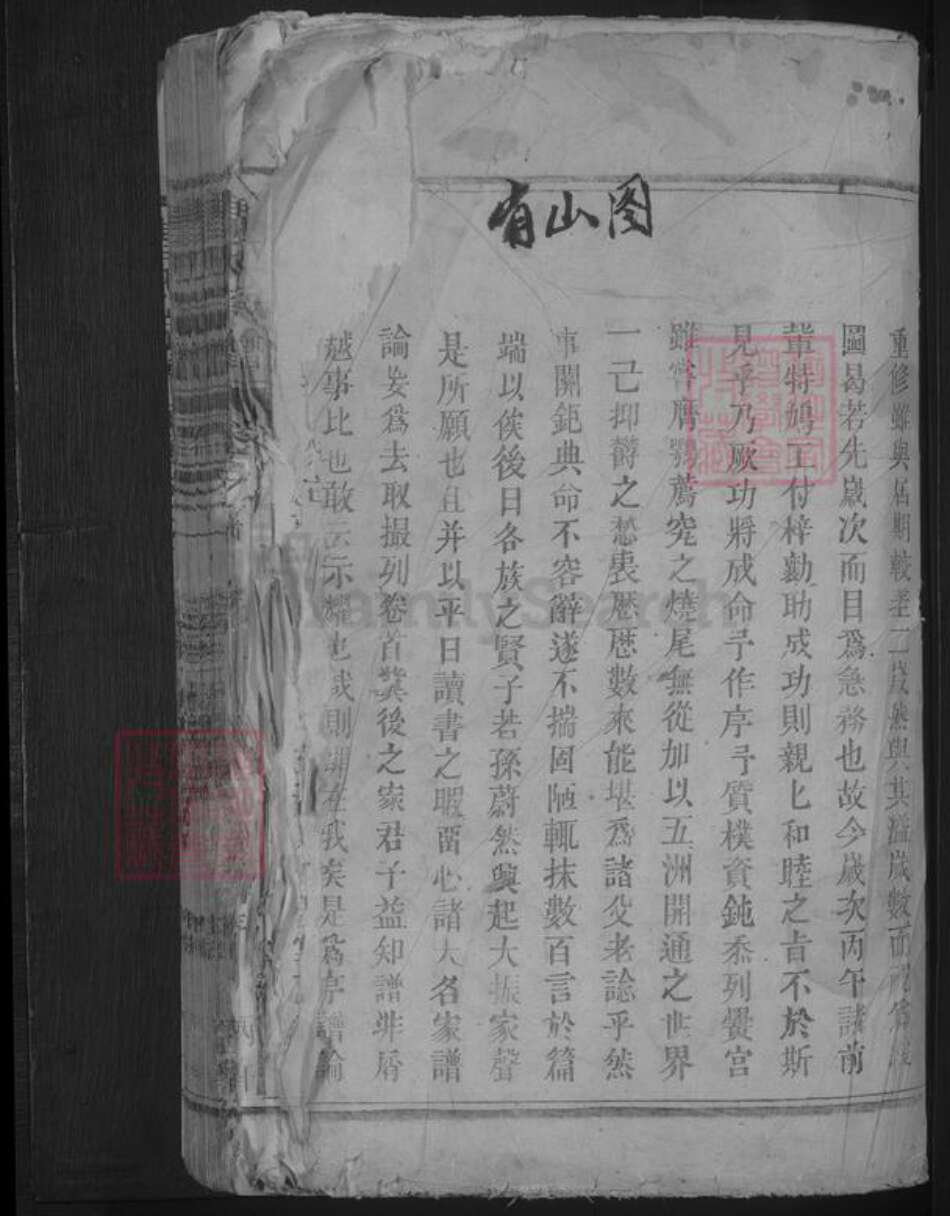 有山图
重修雖與居期較差二歲然與其溢歲數而
圖曷若先歲次而目爲急務也故今歲次丙午諸前
輩特鳩工付梓勷助成功則親七和睦之旨不於斯
見乎乃厥功將成命予作序予質樸資鈍忝列黌宮
雖嘗膺鶚薦究之燒尾無從加以五洲開通之世界
一己抑欝之愁喪歷歷數來能堪爲諸父老諗乎然
事關鉅典命不容辭遂不揣固陋輒抹數百言於篇
端以俟後日各族之賢子若孫蔚然興起大振家聲
是所願也且并以平日讀書之暇留心諸大名家譜
論妄爲去取撮列卷首冀後之家君子益知譜牒
越事比也敢云示耀也哉則謝在我矣是爲序譜論
FamilySearch